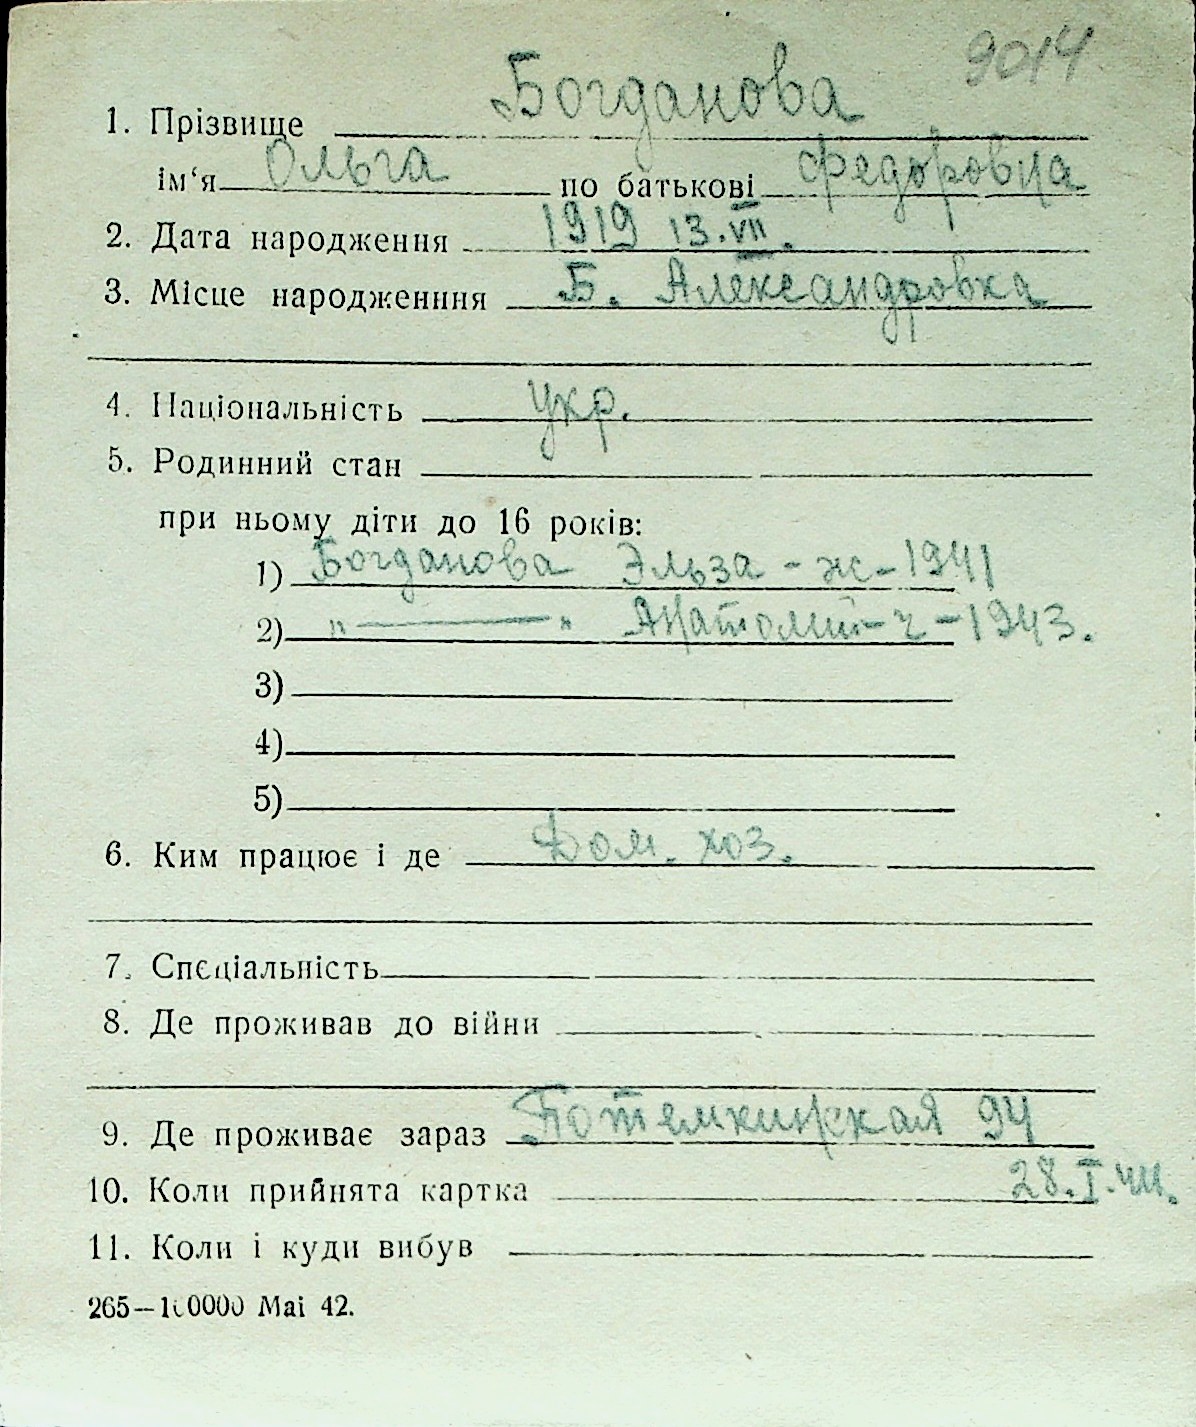 9014
1. Прізвище Богданова
ім‘я Ольга по батькові Федоровна
2. Дата народження 1919 13.VII.
3. Місце народженння Б. Александровка
4. Національність укр.
5. Родинний стан
при ньому діти до 16 років:
1) Богданова Эльза - ж - 1941
2) „ ——— „ Анатолий - ч - 1943.
3)
4)
5)
6. Ким працює і де Дом. хоз.
7. Спеціальність
8. Де проживав до війни
9. Де проживає зараз Потемкинская 94
10. Коли прийнята картка 28.I.44.
11. Коли і куди вибув
265—100000 Mai 42.